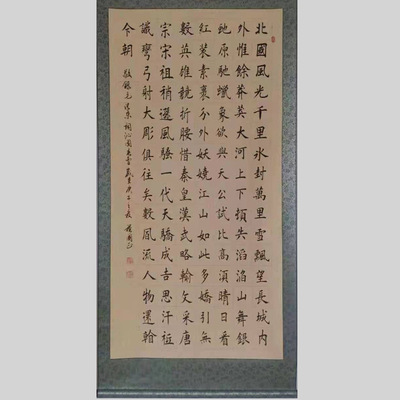 北國風光千里冰封萬里雪飄望長城內
外惟餘莽莽大河上下頓失滔滔山舞銀
蛇原馳蠟象欲與天公試比高須晴日看
紅裝素裹分外妖嬈江山如此多嬌引無
數英雄競折腰惜秦皇漢武略輸文采唐
宗宋祖稍遜風騷一代天驕成吉思汗祗
識彎弓射大彫俱往矣數風流人物還看
今朝 敬錄毛澤東詞沁園春雪